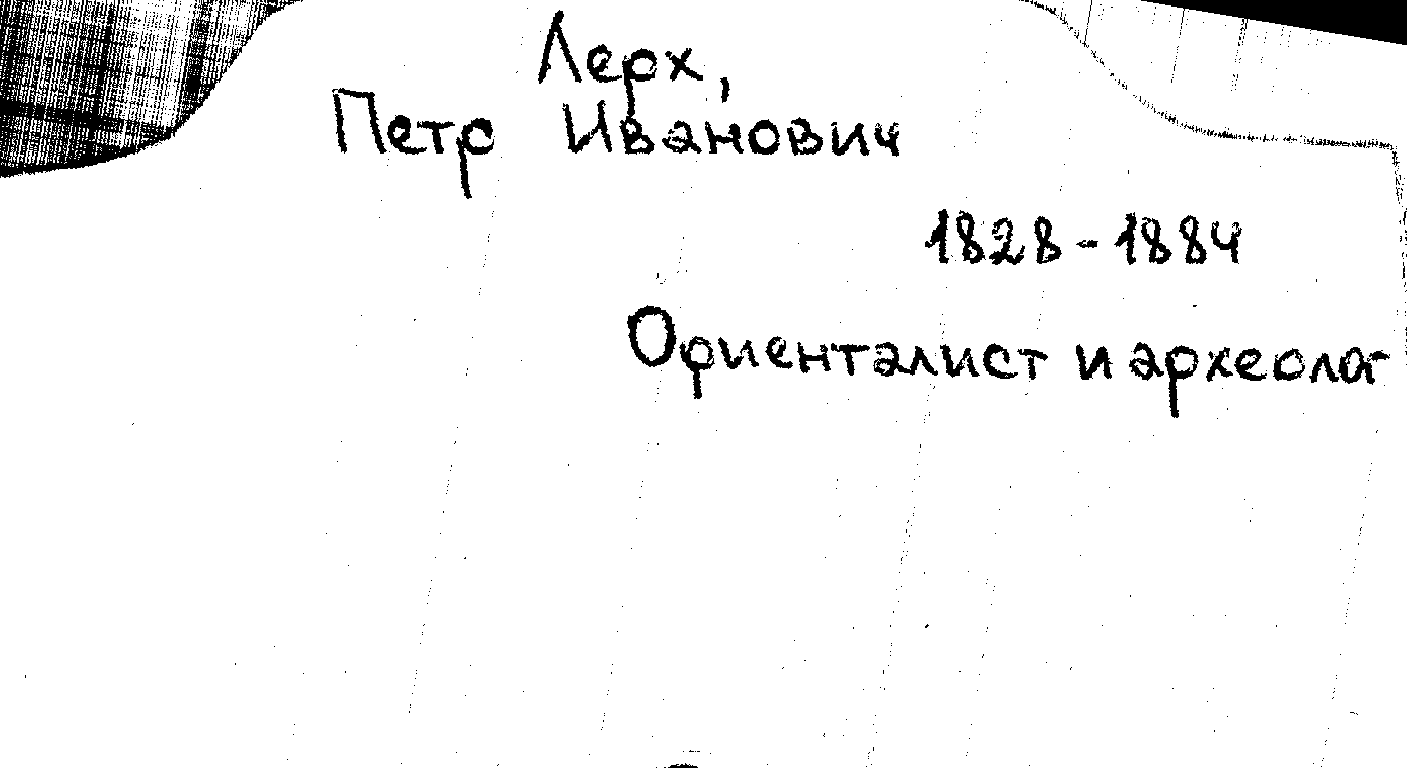 Лерх,
Петр Иванович
1828-1884
Ориенталист и археолог